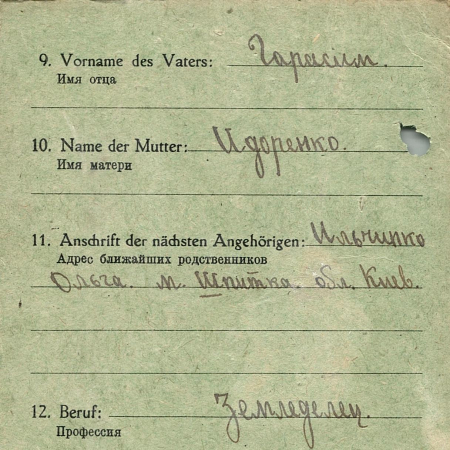 9. Vorname des Vaters: Гарасим.
Имя отца
10. Name der Mutter: Идоренко.
Имя матери
11. Anschrift der nächsten Angehörigen: Ильчипко
Адрес ближайших родственников
Ольга. м. Шпитка. обл. Киев.
12. Beruf: Земледелец.
Профессия